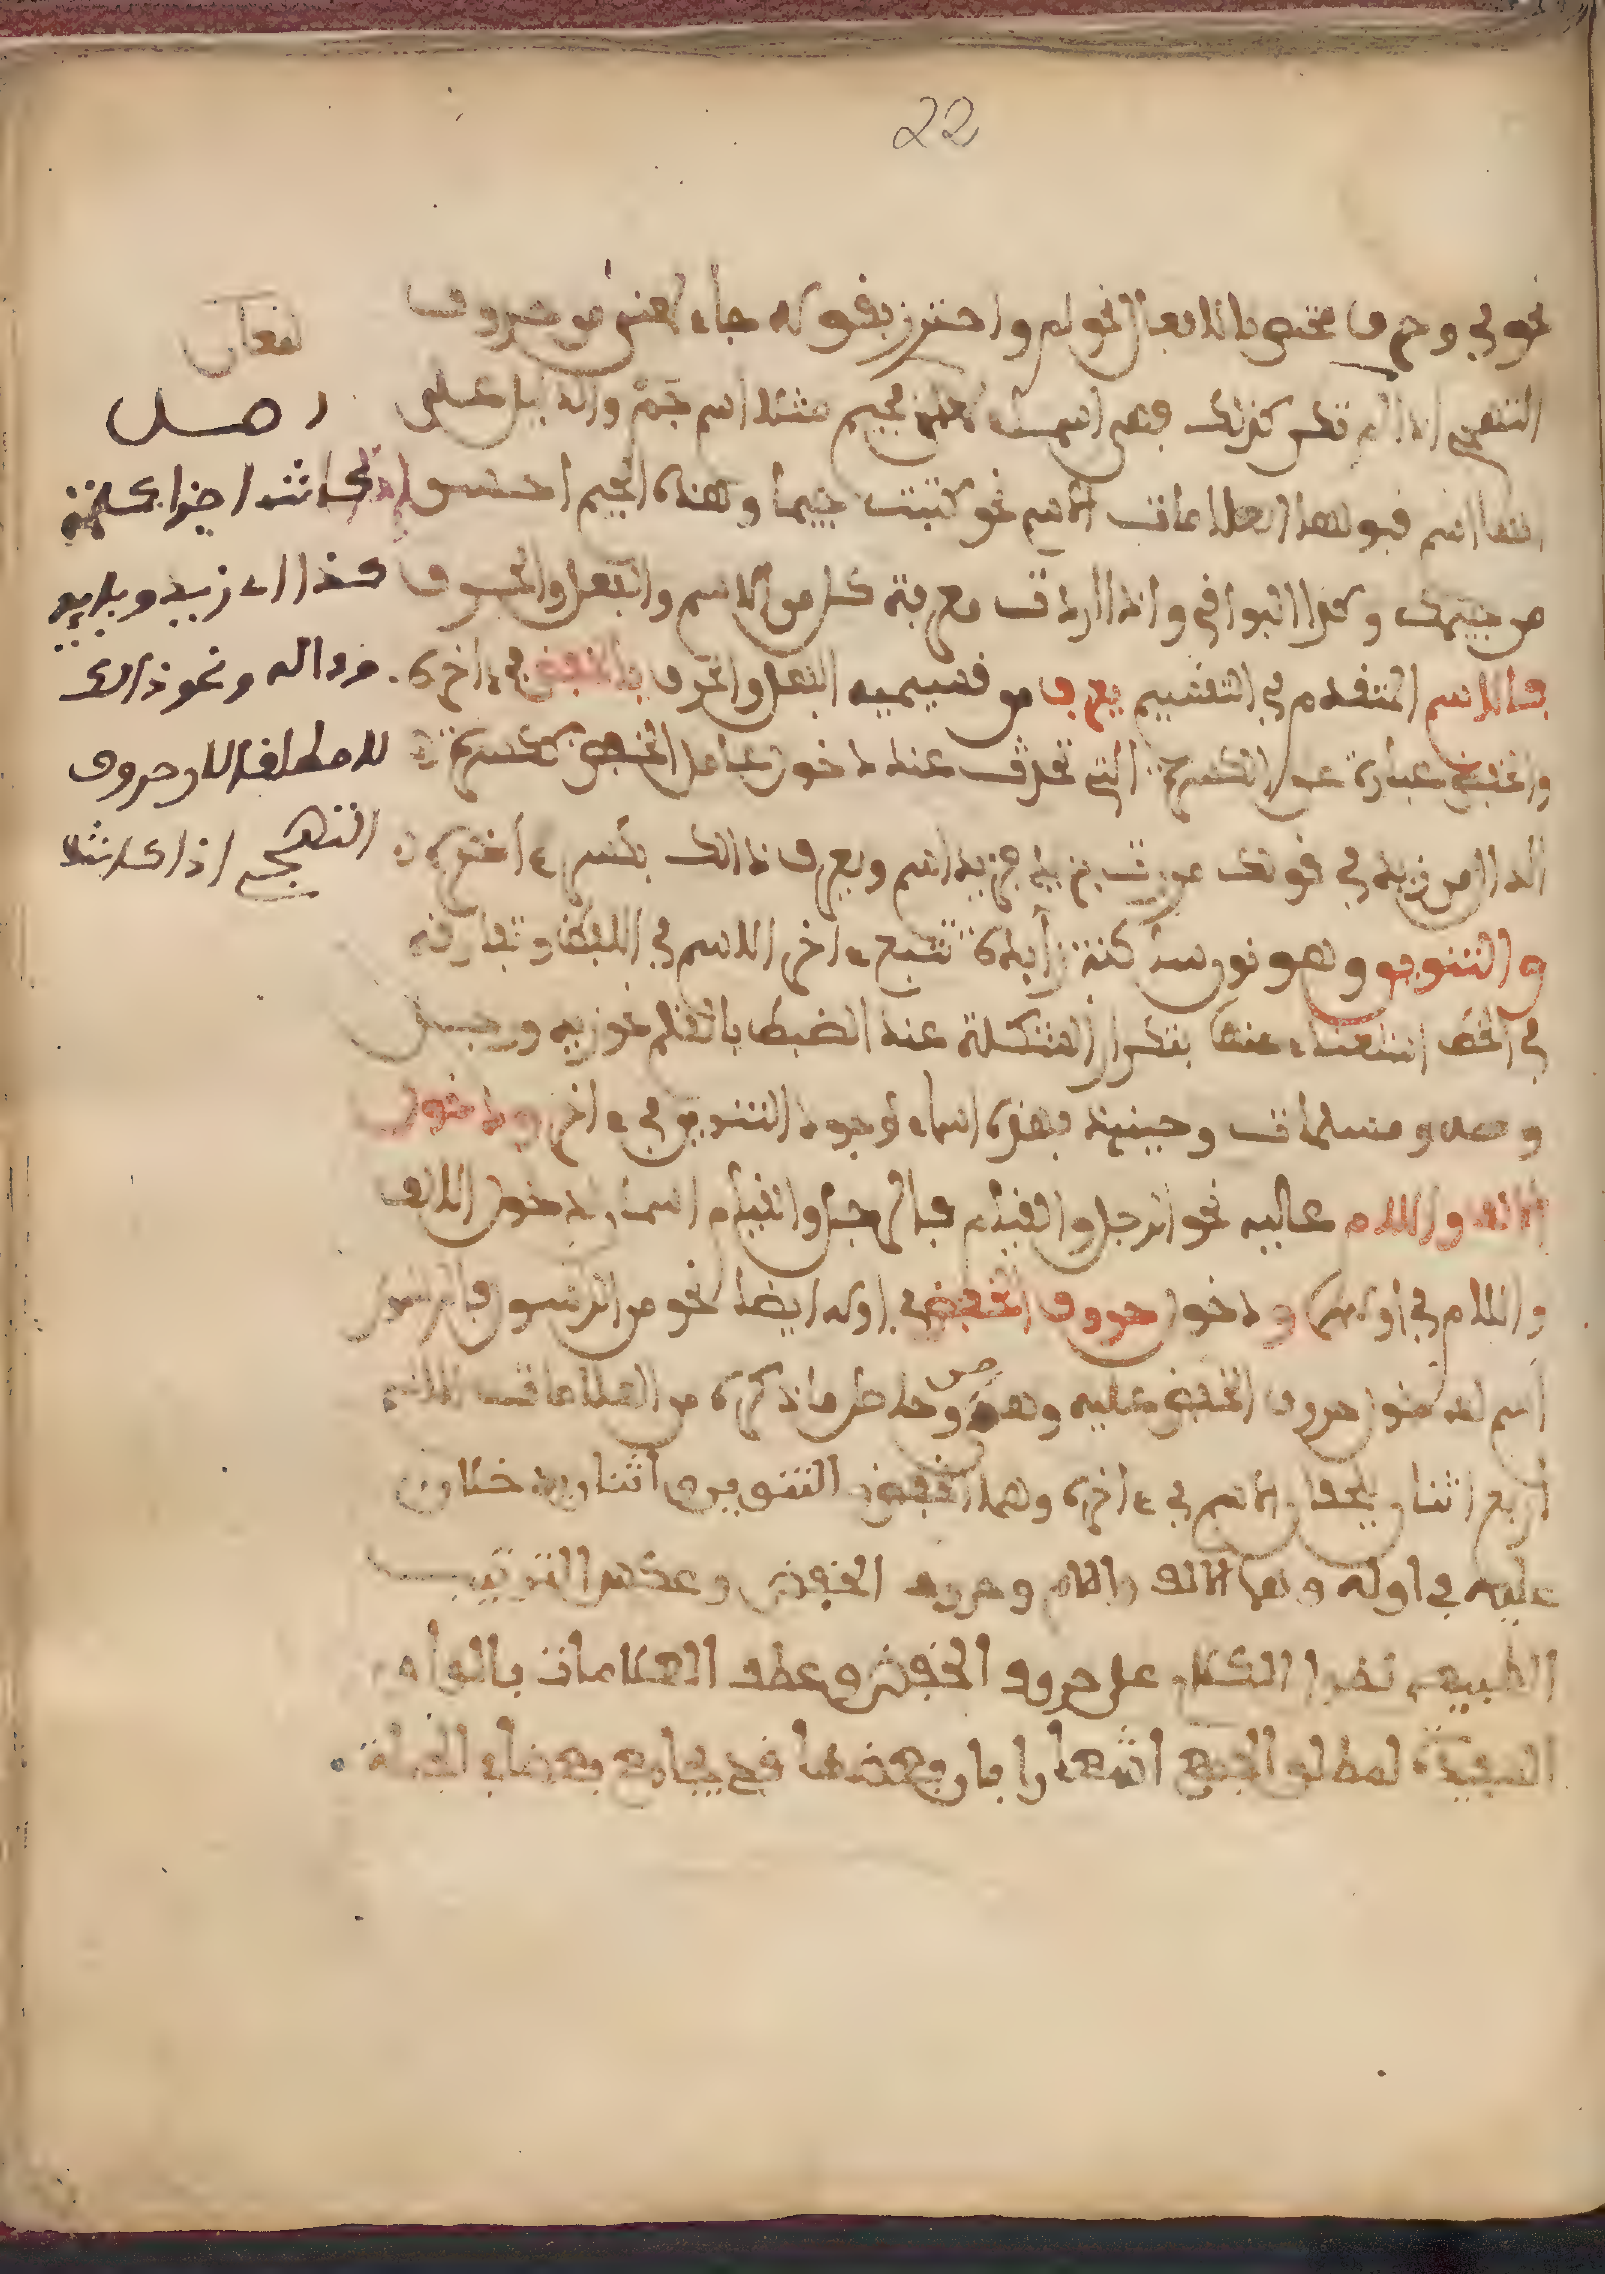 22
نحو في وحرف مختص بالافعال نحو لم واحترز بقوله جاء لمعنى من حروف
التهجي اذا لم تكن كذلك فهي اسماء لان جيم مثلا اسم جَهْ والدليل على
انها اسم قبولها العلامات الاسم نحو كتبت جيما وهذه الجيم احسن
من جيمك وكذا البواقي واذا اردت معرفة كل من الاسم والفعل والحرف
فالاسم المتقدم في التقسيم يعرف من قسيميه الفعل والحرف بالخفض في ءاخره
والخفض عبارة عن الكسرة التي تحدث عند دخول عامل الخفض ككسرة
الدال من زيد في قولك مررت بزيد فزيد اسم ويعرف ذالك بكسر ءاخره
والتنوين وهو نون ساكنة زايدة تتبع ءاخر الاسم في اللفظ وتفارقه
في الخط استغناء عنها بتكرار الشكلة عند الضبط بالقلم نحو زيد ورجل
وصه ومسلمات وحينئذ فهذه اسماء لوجود التنوين في ءاخرها ودخول
الالف واللام عليه نحو الرجل والغلام فالرجل والغلام اسمان لدخول الالف
واللام في اولهما ودخول حروف الخفض في اوله ايضا نحو من الرسول فالرسول
اسم لدخول حروف الخفض عليه وهو من وحاصل ما ذكره من العلامات للاسم
اربع اثنان يلحقان الاسم في ءاخره وهما الخفض التنوين واثنان يدخلان
عليه في اوله وهما الالف واللام وحروف الخفض وعكس الترتيب
الطبيعي لطول الكلام على حروف الخفض وعطف العلامات بالواو
المفيدة لمطلق الجمع اشعارا بان بعضها قد يجامع بعضا في الجملة
لمعان
اصل
اذ كانت اجزا كلمة
كذا اء زيد ويايه
وداله ونحو ذالك
لا مطلقا لان حروف
التهجي اذا كانت